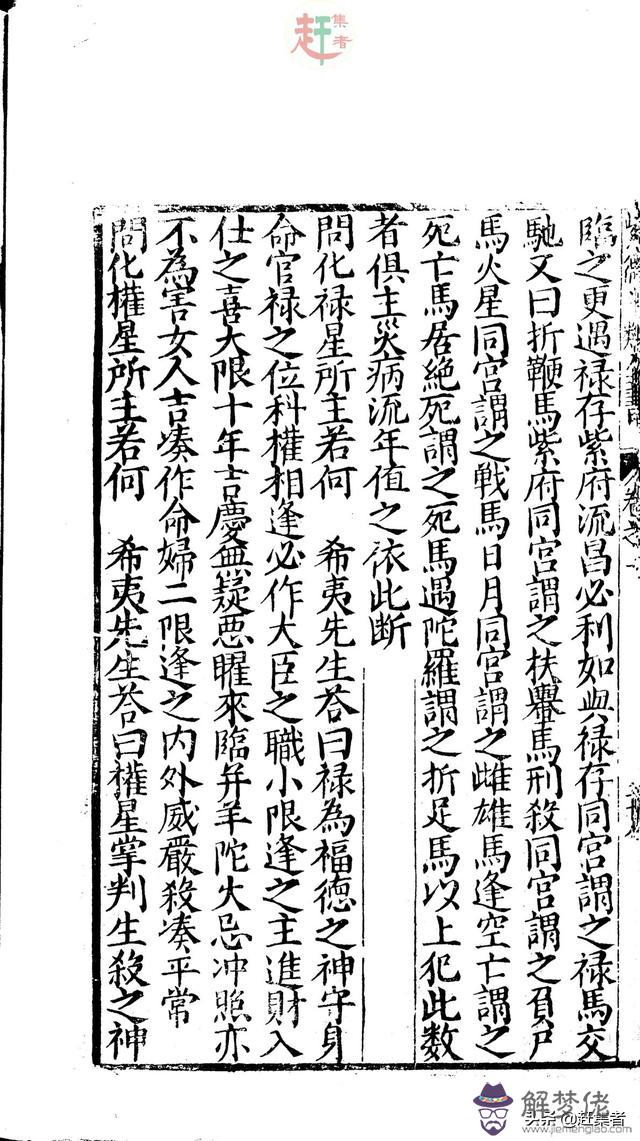 臨之更遇禄存紫府流昌必利如與禄存同宫謂之禄馬交
馳又曰折鞭馬紫府同宫謂之扶轝馬刑殺同宫謂之負尸
馬火星同宫謂之戦馬日月同宫謂之雌雄馬逢空亡謂之
死亡馬居絶死謂之死馬遇陀羅謂之折足馬以上犯此数
者俱主災病流年值之依此断
問化禄星所主若何 希夷先生荅曰禄為福德之神守身
命官禄之位科權相逢必作大臣之職小限逢之主進財入
仕之喜大限十年吉慶無疑悪曜來臨并羊陀火忌冲照亦
不為害女人吉凑作命婦二限逢之内外威嚴殺凑平常
問化權星所主若何 希夷先生荅曰權星掌判生殺之神
卷之
赶集者
解梦佬
www.jiemenglab.com
头条 @赶集者